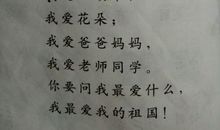 我爱花朵；
我爱爸爸妈妈，
我爱老师同学。
你要问我最爱什么，
我最爱我的祖国！